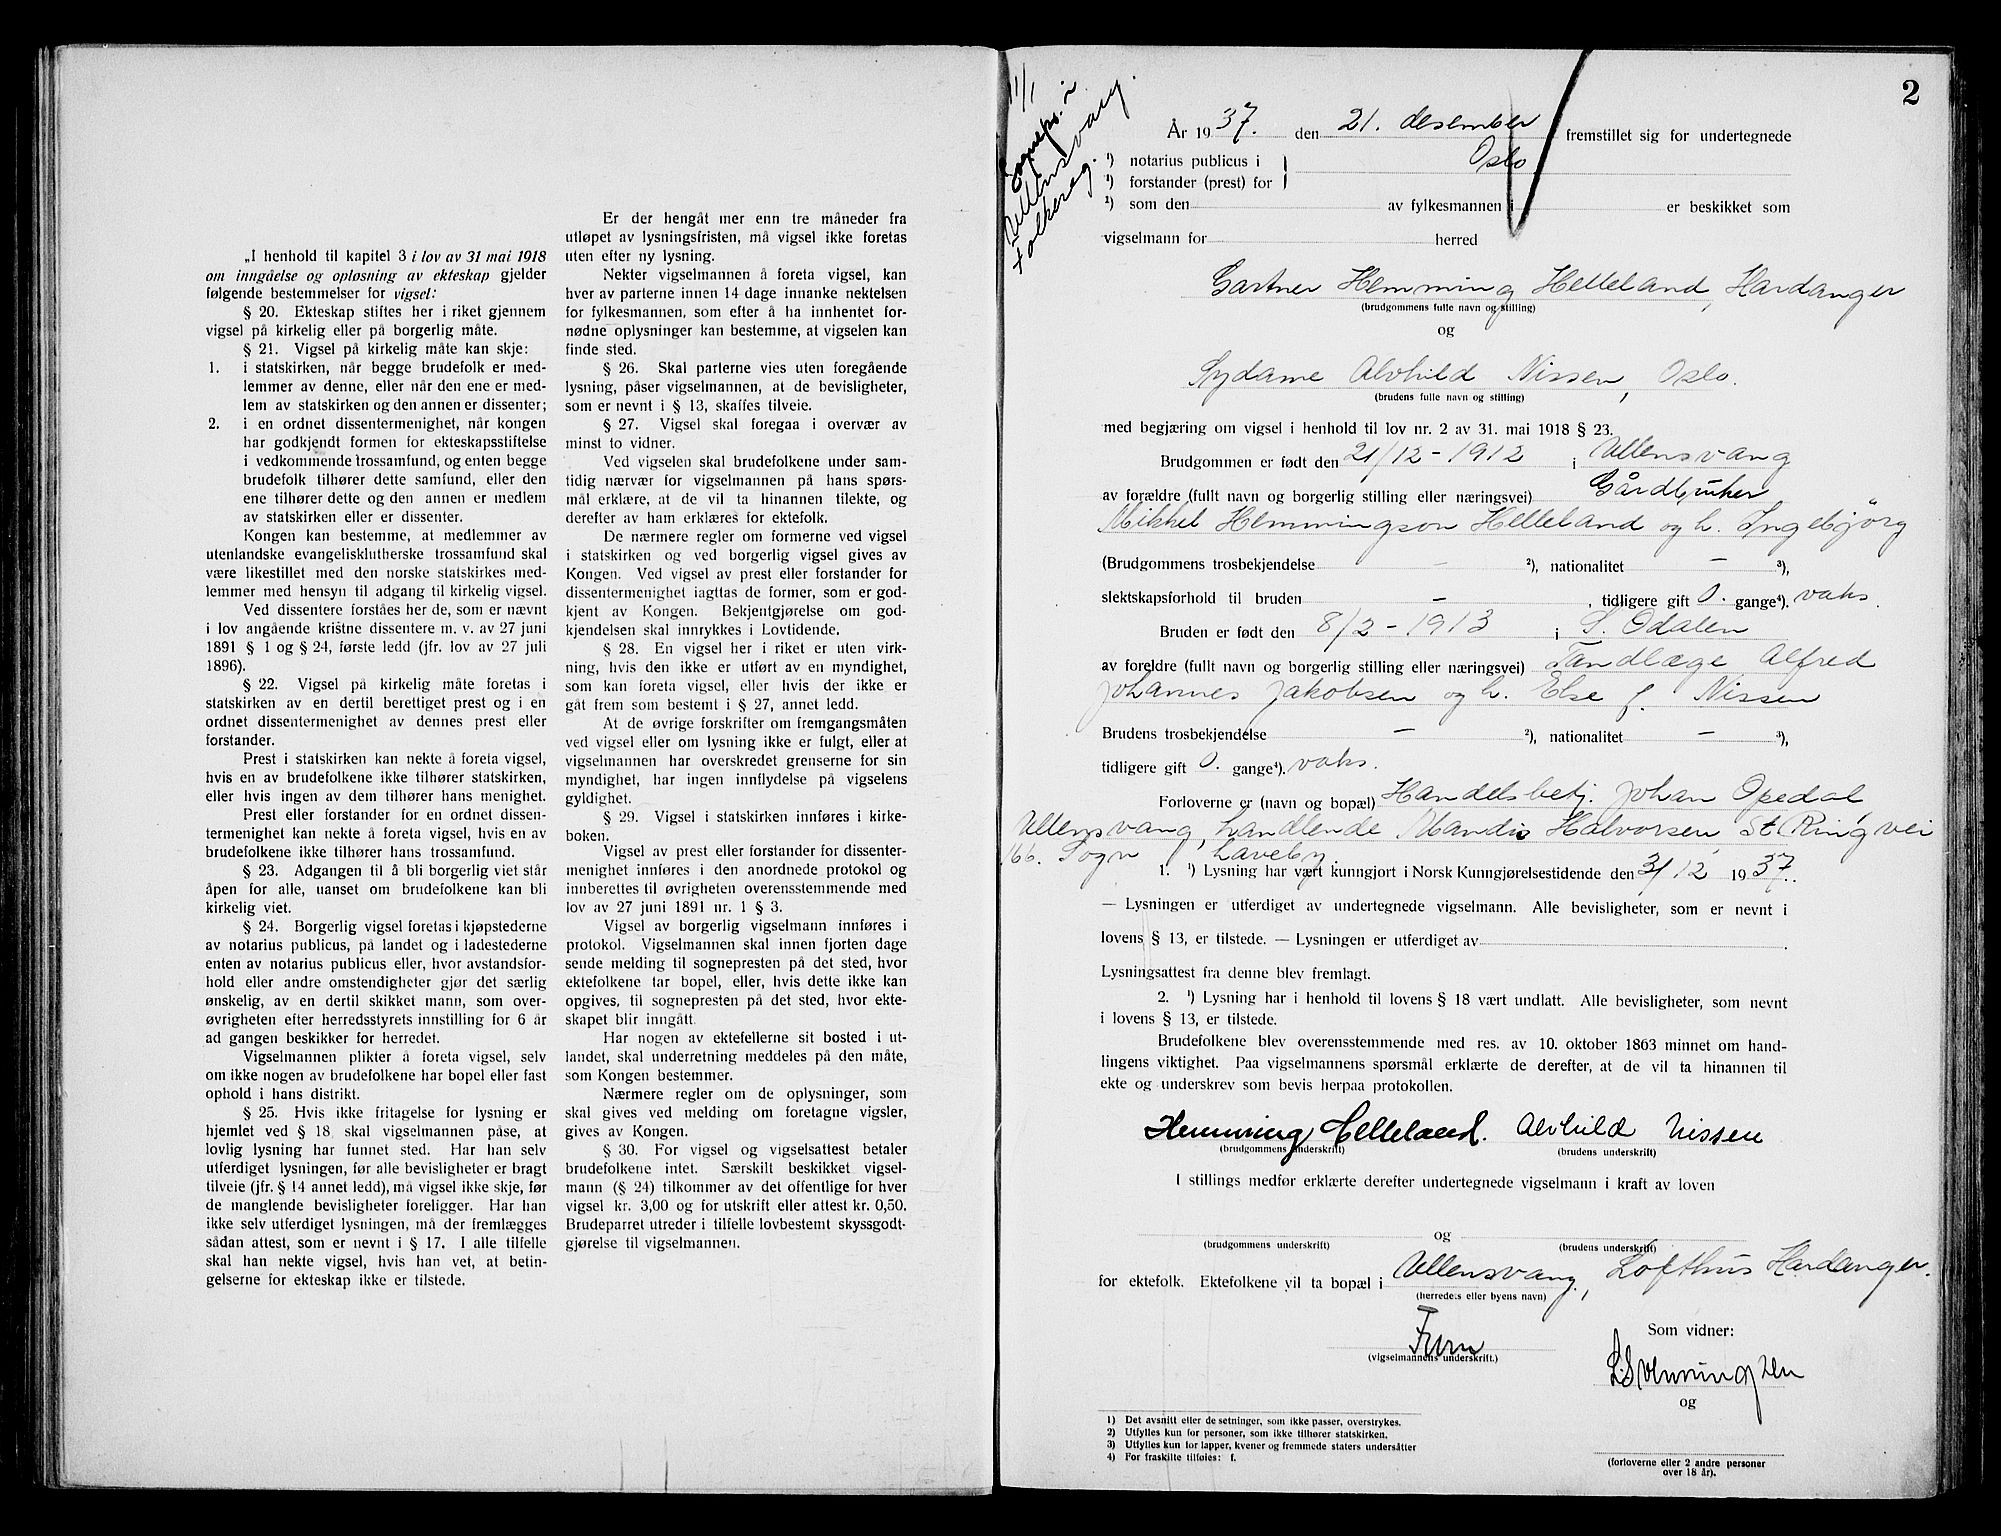 „I henhold til kapitel 3 i lov av 31 mai 1918
om inngåelse og opløsning av ekteskap gjelder
følgende bestemmelser for vigsel:
§ 20. Ekteskap stiftes her i riket gjennem
vigsel på kirkelig eller på borgerlig måte.
§ 21. Vigsel på kirkelig måte kan skje:
1. i statskirken, når begge brudefolk er med-
lemmer av denne, eller når den ene er med-
lem av statskirken og den annen er dissenter;
2. i en ordnet dissentermenighet, når kongen
har godkjendt formen for ekteskapsstiftelse
i vedkommende trossamfund, og enten begge
brudefolk tilhører dette samfund, eller den
ene tilhører dette og den annen er medlem
av statskirken eller er dissenter.
Kongen kan bestemme, at medlemmer av
utenlandske evangelisklutherske trossamfund skal
være likestillet med den norske statskirkes med-
lemmer med hensyn til adgang til kirkelig vigsel.
Ved dissentere forståes her de, som er nævnt
i lov angående kristne dissentere m. v. av 27 juni
1891 § 1 og § 24, første ledd (jfr. lov av 27 juli
1896).
§ 22. Vigsel på kirkelig måte foretas i
statskirken av en dertil berettiget prest og i en
ordnet dissentermenighet av dennes prest eller
forstander.
Prest i statskirken kan nekte å foreta vigsel,
hvis en av brudefolkene ikke tilhører statskirken,
eller hvis ingen av dem tilhører hans menighet.
Prest eller forstander for en ordnet dissen-
termenighet kan nekte å foreta vigsel, hvis en av
brudefolkene ikke tilhører hans trossamfund.
§ 23. Adgangen til å bli borgerlig viet står
åpen for alle, uanset om brudefolkene kan bli
kirkelig viet.
§ 24. Borgerlig vigsel foretas i kjøpstederne
av notarius publicus, på landet og i ladestederne
enten av notarius publicus eller, hvor avstandsfor-
hold eller andre omstendigheter gjør det særlig
ønskelig, av en dertil skikket mann, som over-
øvrigheten efter herredsstyrets innstilling for 6 år
ad gangen beskikker for herredet.
Vigselmannen plikter å foreta vigsel, selv
om ikke nogen av brudefolkene har bopel eller fast
ophold i hans distrikt.
§ 25. Hvis ikke fritagelse for lysning er
hjemlet ved § 18, skal vigselmannen påse, at
lovlig lysning har funnet sted. Har han selv
utferdiget lysningen, før alle bevisligheter er bragt
tilveie (jfr. § 14 annet ledd), må vigsel ikke skje, før
de manglende bevisligheter foreligger. Har han
ikke selv utferdiget lysningen, må der fremlægges
sådan attest, som er nevnt i § 17. I alle tilfelle
skal han nekte vigsel, hvis han vet, at betin-
gelserne for ekteskap ikke er tilstede.
Er der hengåt mer enn tre måneder fra
utløpet av lysningsfristen, må vigsel ikke foretas
uten efter ny lysning.
Nekter vigselmannen å foreta vigsel, kan
hver av parterne innen 14 dage innanke nektelsen
for fylkesmannen, som efter å ha innhentet for-
nødne oplysninger kan bestemme, at vigselen kan
finde sted.
§ 26. Skal parterne vies uten foregående
lysning, påser vigselmannen, at de bevisligheter,
som er nevnt i § 13, skaffes tilveie.
§ 27. Vigsel skal foregaa i overvær av
minst to vidner.
Ved vigselen skal brudefolkene under sam-
tidig nærvær for vigselmannen på hans spørs-
mål erklære, at de vil ta hinannen tilekte, og
derefter av ham erklæres for ektefolk.
De nærmere regler om formerne ved vigsel
i statskirken og ved borgerlig vigsel gives av
Kongen. Ved vigsel av prest eller forstander for
dissentermenighet iagttas de former, som er god-
kjent av Kongen. Bekjentgjørelse om god-
kjendelsen skal innrykkes i Lovtidende.
§ 28. En vigsel her i riket er uten virk-
ning, hvis den ikke er utført av en myndighet,
som kan foreta vigsel, eller hvis der ikke er
gåt frem som bestemt i § 27, annet ledd.
At de øvrige forskrifter om fremgangsmåten
ved vigsel eller om lysning ikke er fulgt, eller at
vigselmannen har overskredet grenserne for sin
myndighet, har ingen innflydelse på vigselens
gyldighet.
§ 29. Vigsel i statskirken innføres i kirke-
boken.
Vigsel av prest eller forstander for dissenter-
menighet innføres i den anordnede protokol og
innberettes til øvrigheten overensstemmende med
lov av 27 juni 1891 nr. 1 § 3.
Vigsel av borgerlig vigselmann innføres i
protokol. Vigselmannen skal innen fjorten dage
sende melding til sognepresten på det sted, hvor
ektefolkene tar bopel, eller, hvis dette ikke kan
opgives, til sognepresten på det sted, hvor ekte-
skapet blir inngått.
Har nogen av ektefellerne sit bosted i ut-
landet, skal underretning meddeles på den måte,
som Kongen bestemmer.
Nærmere regler om de oplysninger, som
skal gives ved melding om foretagne vigsler,
gives av Kongen.
§ 30. For vigsel og vigselsattest betaler
brudefolkene intet. Særskilt beskikket vigsel-
mann (§ 24) tilkommer av det offentlige for hver
vigsel kr. 3,00 og for utskrift eller attest kr. 0,50.
Brudeparret utreder i tilfelle lovbestemt skyssgodt-
gjørelse til vigselmannen.
11/1
Sogneps. i
Ullensvang.
Folkereg.
2
År 1937. den 21. desember fremstillet sig for undertegnede
1) notarius publicus i Oslo
1) forstander (prest) for
1) som den av fylkesmannen i er beskikket som
vigselmann for herred
Gartner Hemming Helleland, Hardanger
(brudgommens fulle navn og stilling)
og
Sydame Alvhild Nissen, Oslo.
(brudens fulle navn og stilling)
med begjæring om vigsel i henhold til lov nr. 2 av 31. mai 1918 § 23.
Brudgommen er født den 21/12 - 1912 i Ullensvang
av forældre (fullt navn og borgerlig stilling eller næringsvei) Gårdbruker
Mikkel Hemmingson Helleland og h. Ingebjörg
(Brudgommens trosbekjendelse — 2), nationalitet — 3),
slektskapsforhold til bruden — , tidligere gift 0. gange4). vaks.
Bruden er født den 8/2 - 1913 i S. Odalen
av foreldre (fullt navn og borgerlig stilling eller næringsvei) Tandlæge Alfred
Johannes Jakobsen og h. Else f. Nissen
Brudens trosbekjendelse — 2), nationalitet — 3),
tidligere gift 0. gange4). vaks.
Forloverne er (navn og bopæl) Handelsbetj. Johan Opedal,
Ullensvang, handlende Mandis Halvorsen St. Ringvei
166. Sogn haveby.
1. 1) Lysning har vært kunngjort i Norsk Kunngjørelsestidende den 3/12 1937.
— Lysningen er utferdiget av undertegnede vigselmann. Alle bevisligheter, som er nevnt i
lovens § 13, er tilstede. — Lysningen er utferdiget av
Lysningsattest fra denne blev fremlagt.
2. 1) Lysning har i henhold til lovens § 18 vært undlatt. Alle bevisligheter, som nevnt
i lovens § 13, er tilstede.
Brudefolkene blev overensstemmende med res. av 10. oktober 1863 minnet om hand-
lingens viktighet. Paa vigselmannens spørsmål erklærte de derefter, at de vil ta hinannen til
ekte og underskrev som bevis herpaa protokollen.
Hemming Helleland. Alvhild Nissen
(brudgommens underskrift) (brudens underskrift)
I stillings medfør erklærte derefter undertegnede vigselmann i kraft av loven
og
(brudgommens underskrift) (brudens underskrift)
for ektefolk. Ektefolkene vil ta bopæl i Ullensvang, Lofthus Hardanger.
(herredets eller byens navn)
Som vidner:
(vigselmannens underskrift.)
og
1) Det avsnitt eller de setninger, som ikke passer, overstrykes.
2) Utfylles kun for personer, som ikke tilhører statskirken.
3) Utfylles kun for lapper, kvener og fremmede staters undersåtter
4) For fraskilte tilføies: f.
(forloverne eller 2 andre personer
over 18 år).